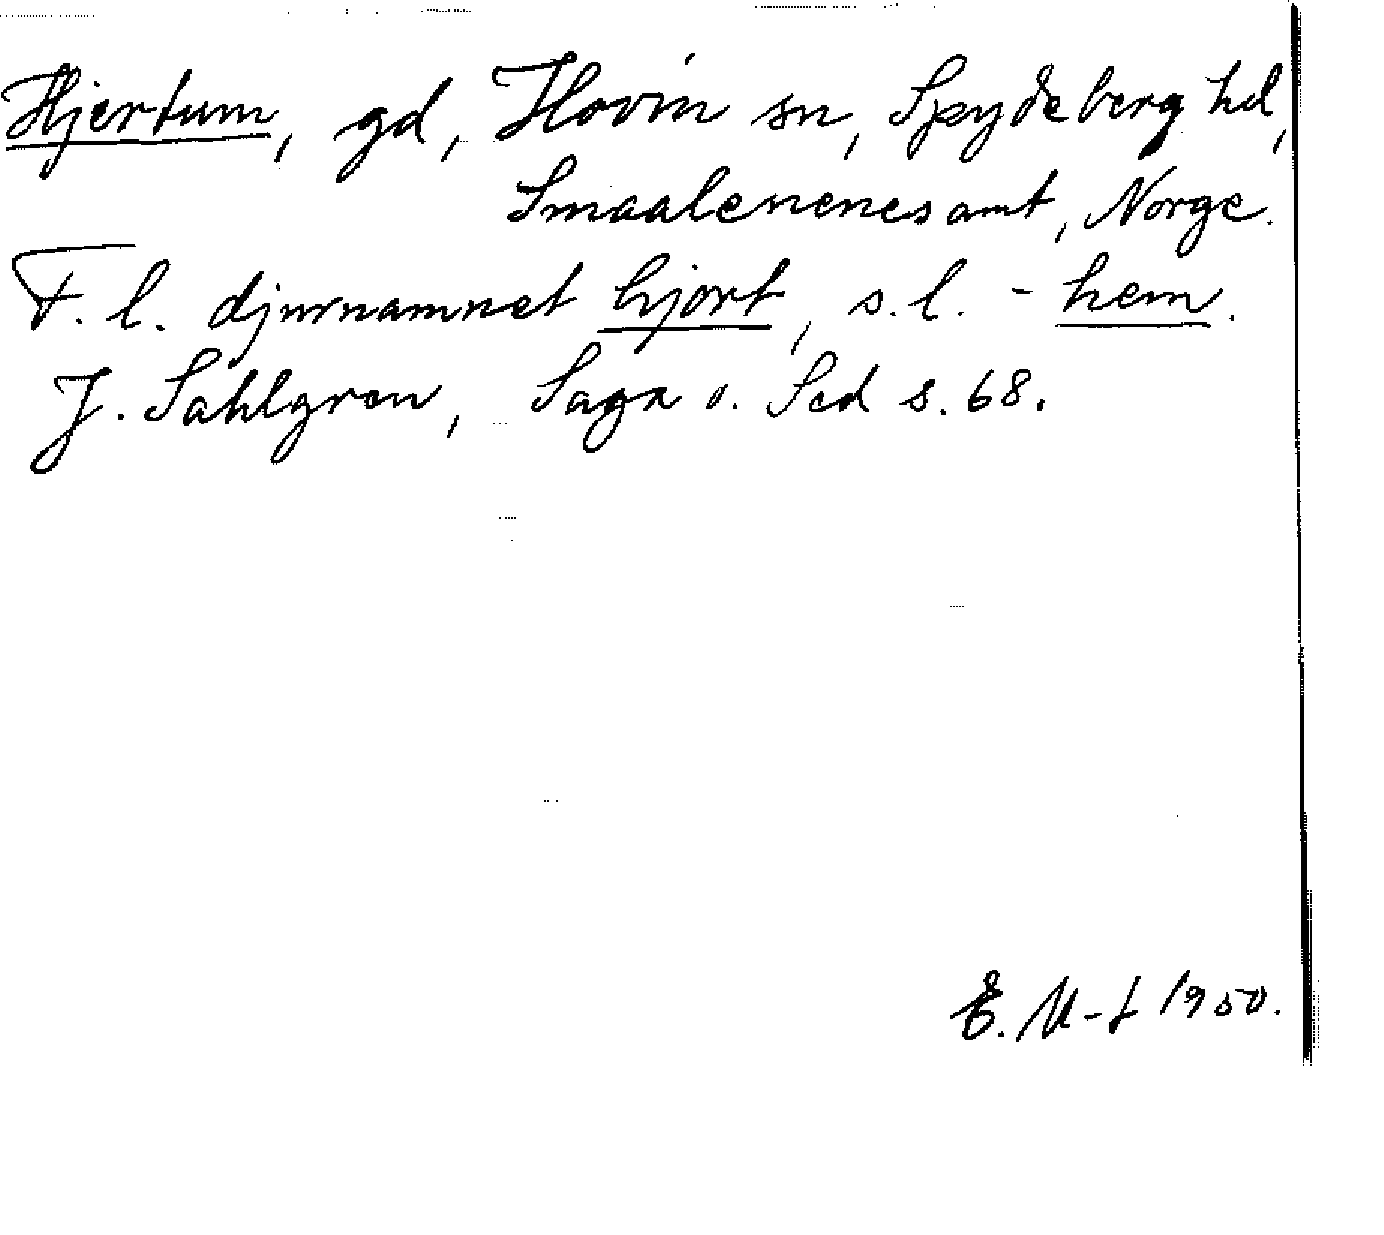 Hjertum, gd, Hovin sn, Spydeberg hd,
Smaalenenes amt, Norge.
F. l. djurnamnet hjort, s. l. - hem.
J. Sahlgren, Saga o. Sed s. 68.
E. M-t 1950.